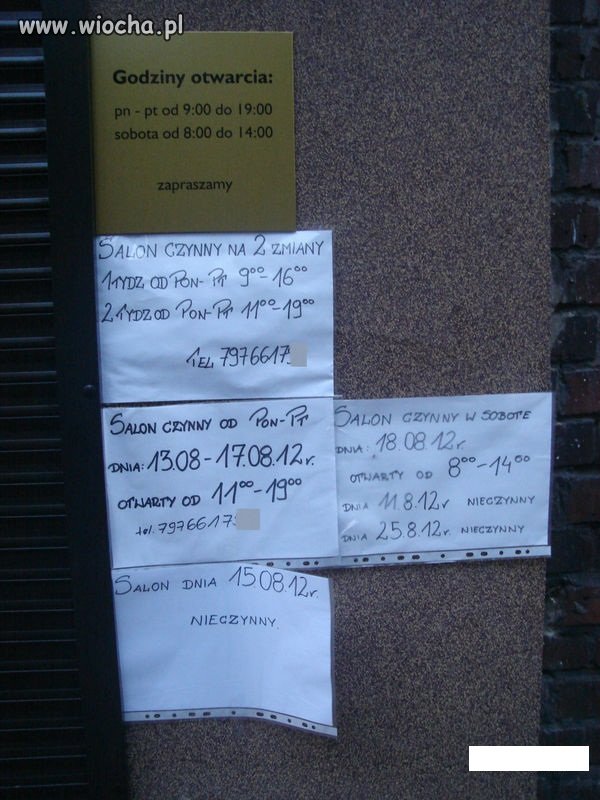 www.wiocha.pl
Godziny otwarcia:
pn - pt od 9:00 do 19:00
sobota od 8:00 do 14:00
zapraszamy
SALON CZYNNY NA 2 ZMIANY
1 TYDZ OD PON- PT 9⁰⁰-16⁰⁰
2 TYDZ OD PON-PT 11⁰⁰-19⁰⁰
TEL 79766179
SALON CZYNNY OD PON-PT
DNIA: 13.08 - 17.08.12r.
OTWARTY OD 11⁰⁰-19⁰⁰
tel. 79766179
SALON CZYNNY W SOBOTE
DNIA: 18.08.12r.
OTWARTY OD 8⁰⁰-14⁰⁰
DNIA 11.8.12r NIECZYNNY
DNIA 25.8.12r. NIECZYNNY
SALON DNIA 15.08.12r.
NIECZYNNY.